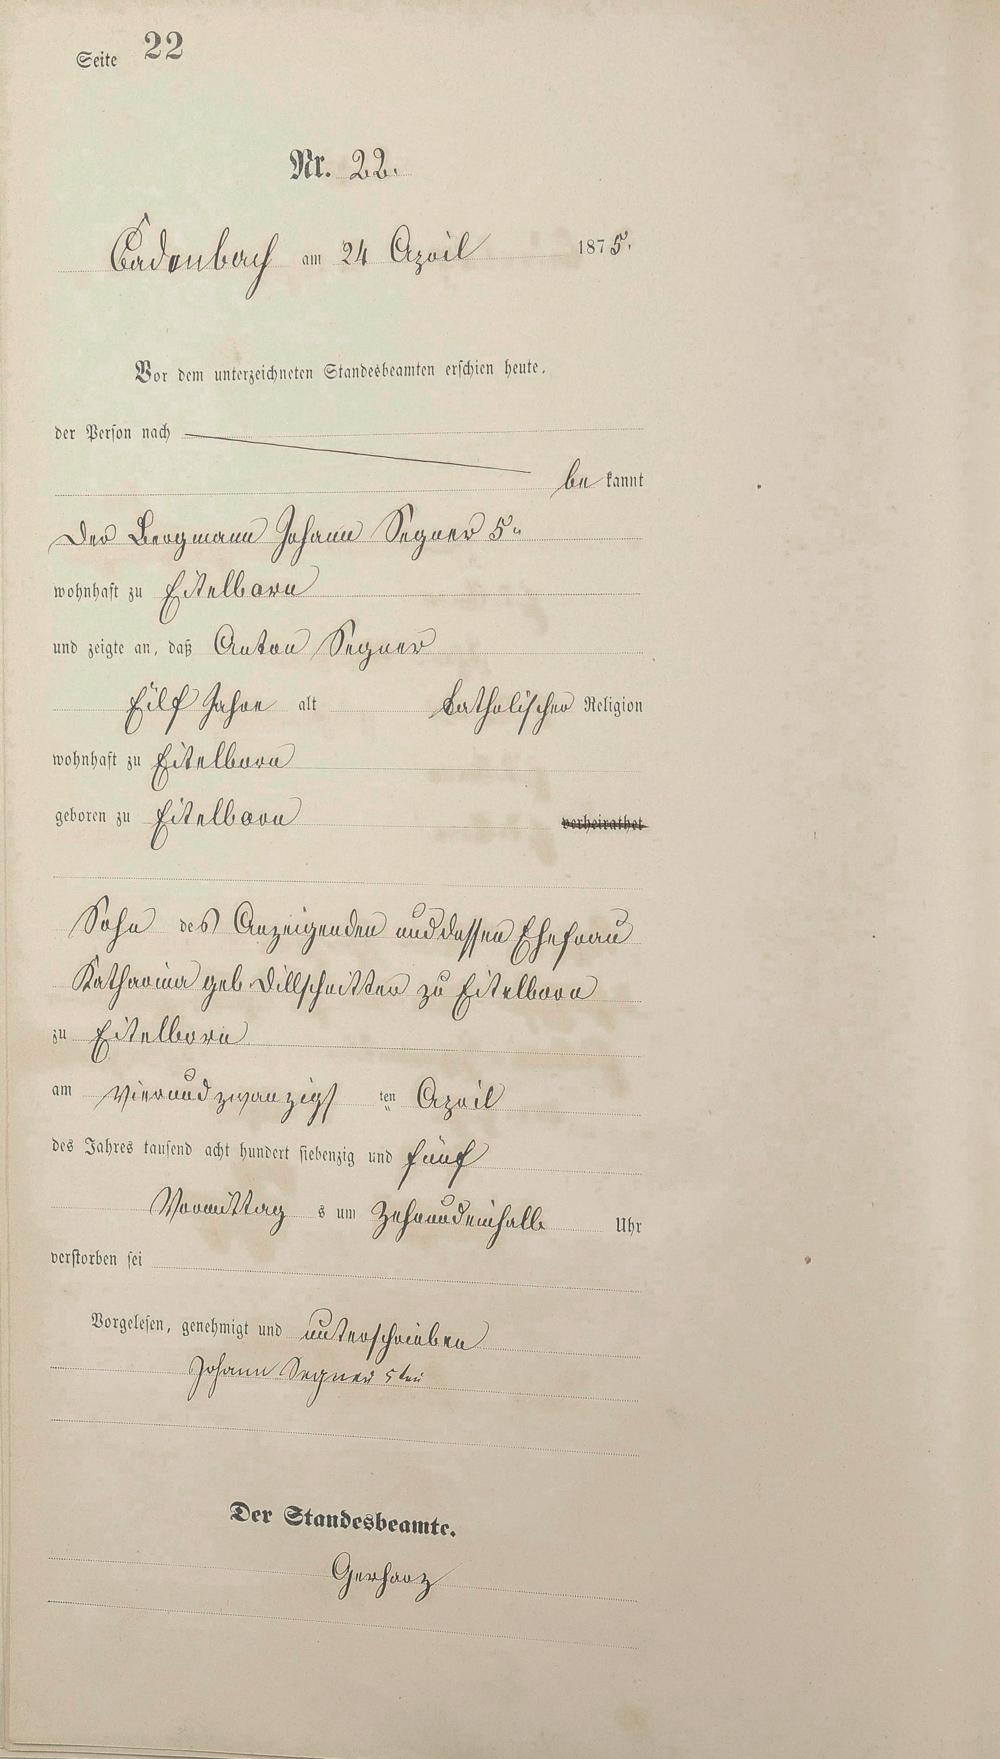 Seite 22
Nr. 22.
Cadenbach am 24 April 1875.
Vor dem unterzeichneten Standesbeamten erschien heute,
der Person nach
be kannt
Der Bergmann Johann Segner 5"
wohnhaft zu Eitelborn
und zeigte an, daß Anton Segner
Eilf Jahre alt katholischer Religion
wohnhaft zu Eitelborn
geboren zu Eitelborn verheirathet
Sohn des Anzeigenden und dessen Ehefrau
Katharina geb Dillschnitter zu Eitelborn
zu Eitelborn
am vierundzwanzigs ten April
des Jahres tausend acht hundert siebenzig und fünf
Vormittag s um Zehnundeinhalb Uhr
verstorben sei
Vorgelesen, genehmigt und unterschrieben
Johann Segner 5ten
Der Standesbeamte.
Gerharz